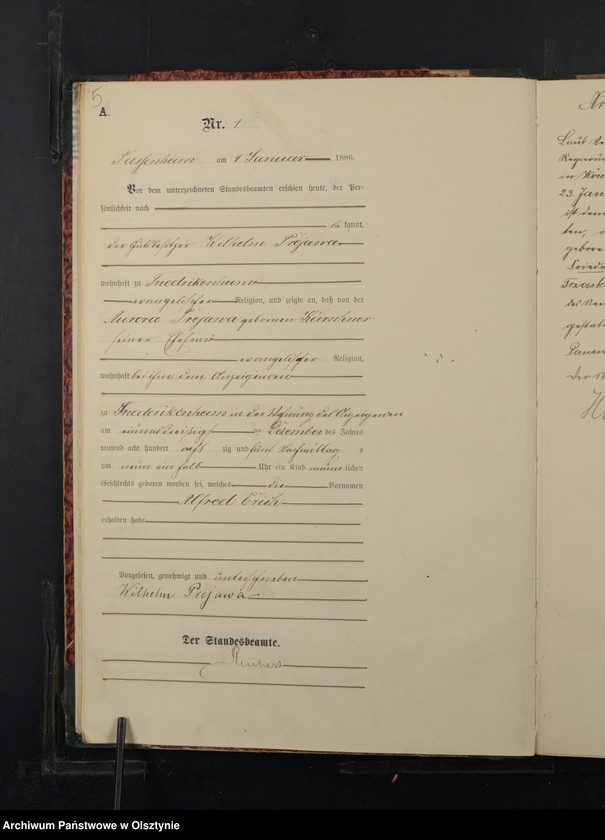 5
A.
Nr. 1
Passenheim am 4 Januar 1886.
Vor dem unterzeichneten Standesbeamten erschien heute, der Per-
sönlichkeit nach
be kannt,
der Gutsbesitzer Wilhelm Prejawa
wohnhaft zu Friedrikenheim
evangelischer Religion, und zeigte an, daß von der
Aurora Prejawa geborenen Kirschner
seiner Ehefrau
evangelischer Religion,
wohnhaft bei ihm dem Anzeigenden
zu Friederikenheim in der Wohnung des Anzeigenden
am Dezember des Jahres
tausend acht hundert acht zig und fünf Nachmittag s
um neun ein halb Uhr ein Kind männ lichen
Geschlechts geboren worden sei, welches die Vornamen
Alfred Erich
erhalten habe
Vorgelesen, genehmigt und unterschrieben
Wilhelm Prejawa
Der Standesbeamte.
Nr
23 Jan
ist dem
ten,
gebore
Friede
gestat
Der St
Archiwum Państwowe w Olsztynie